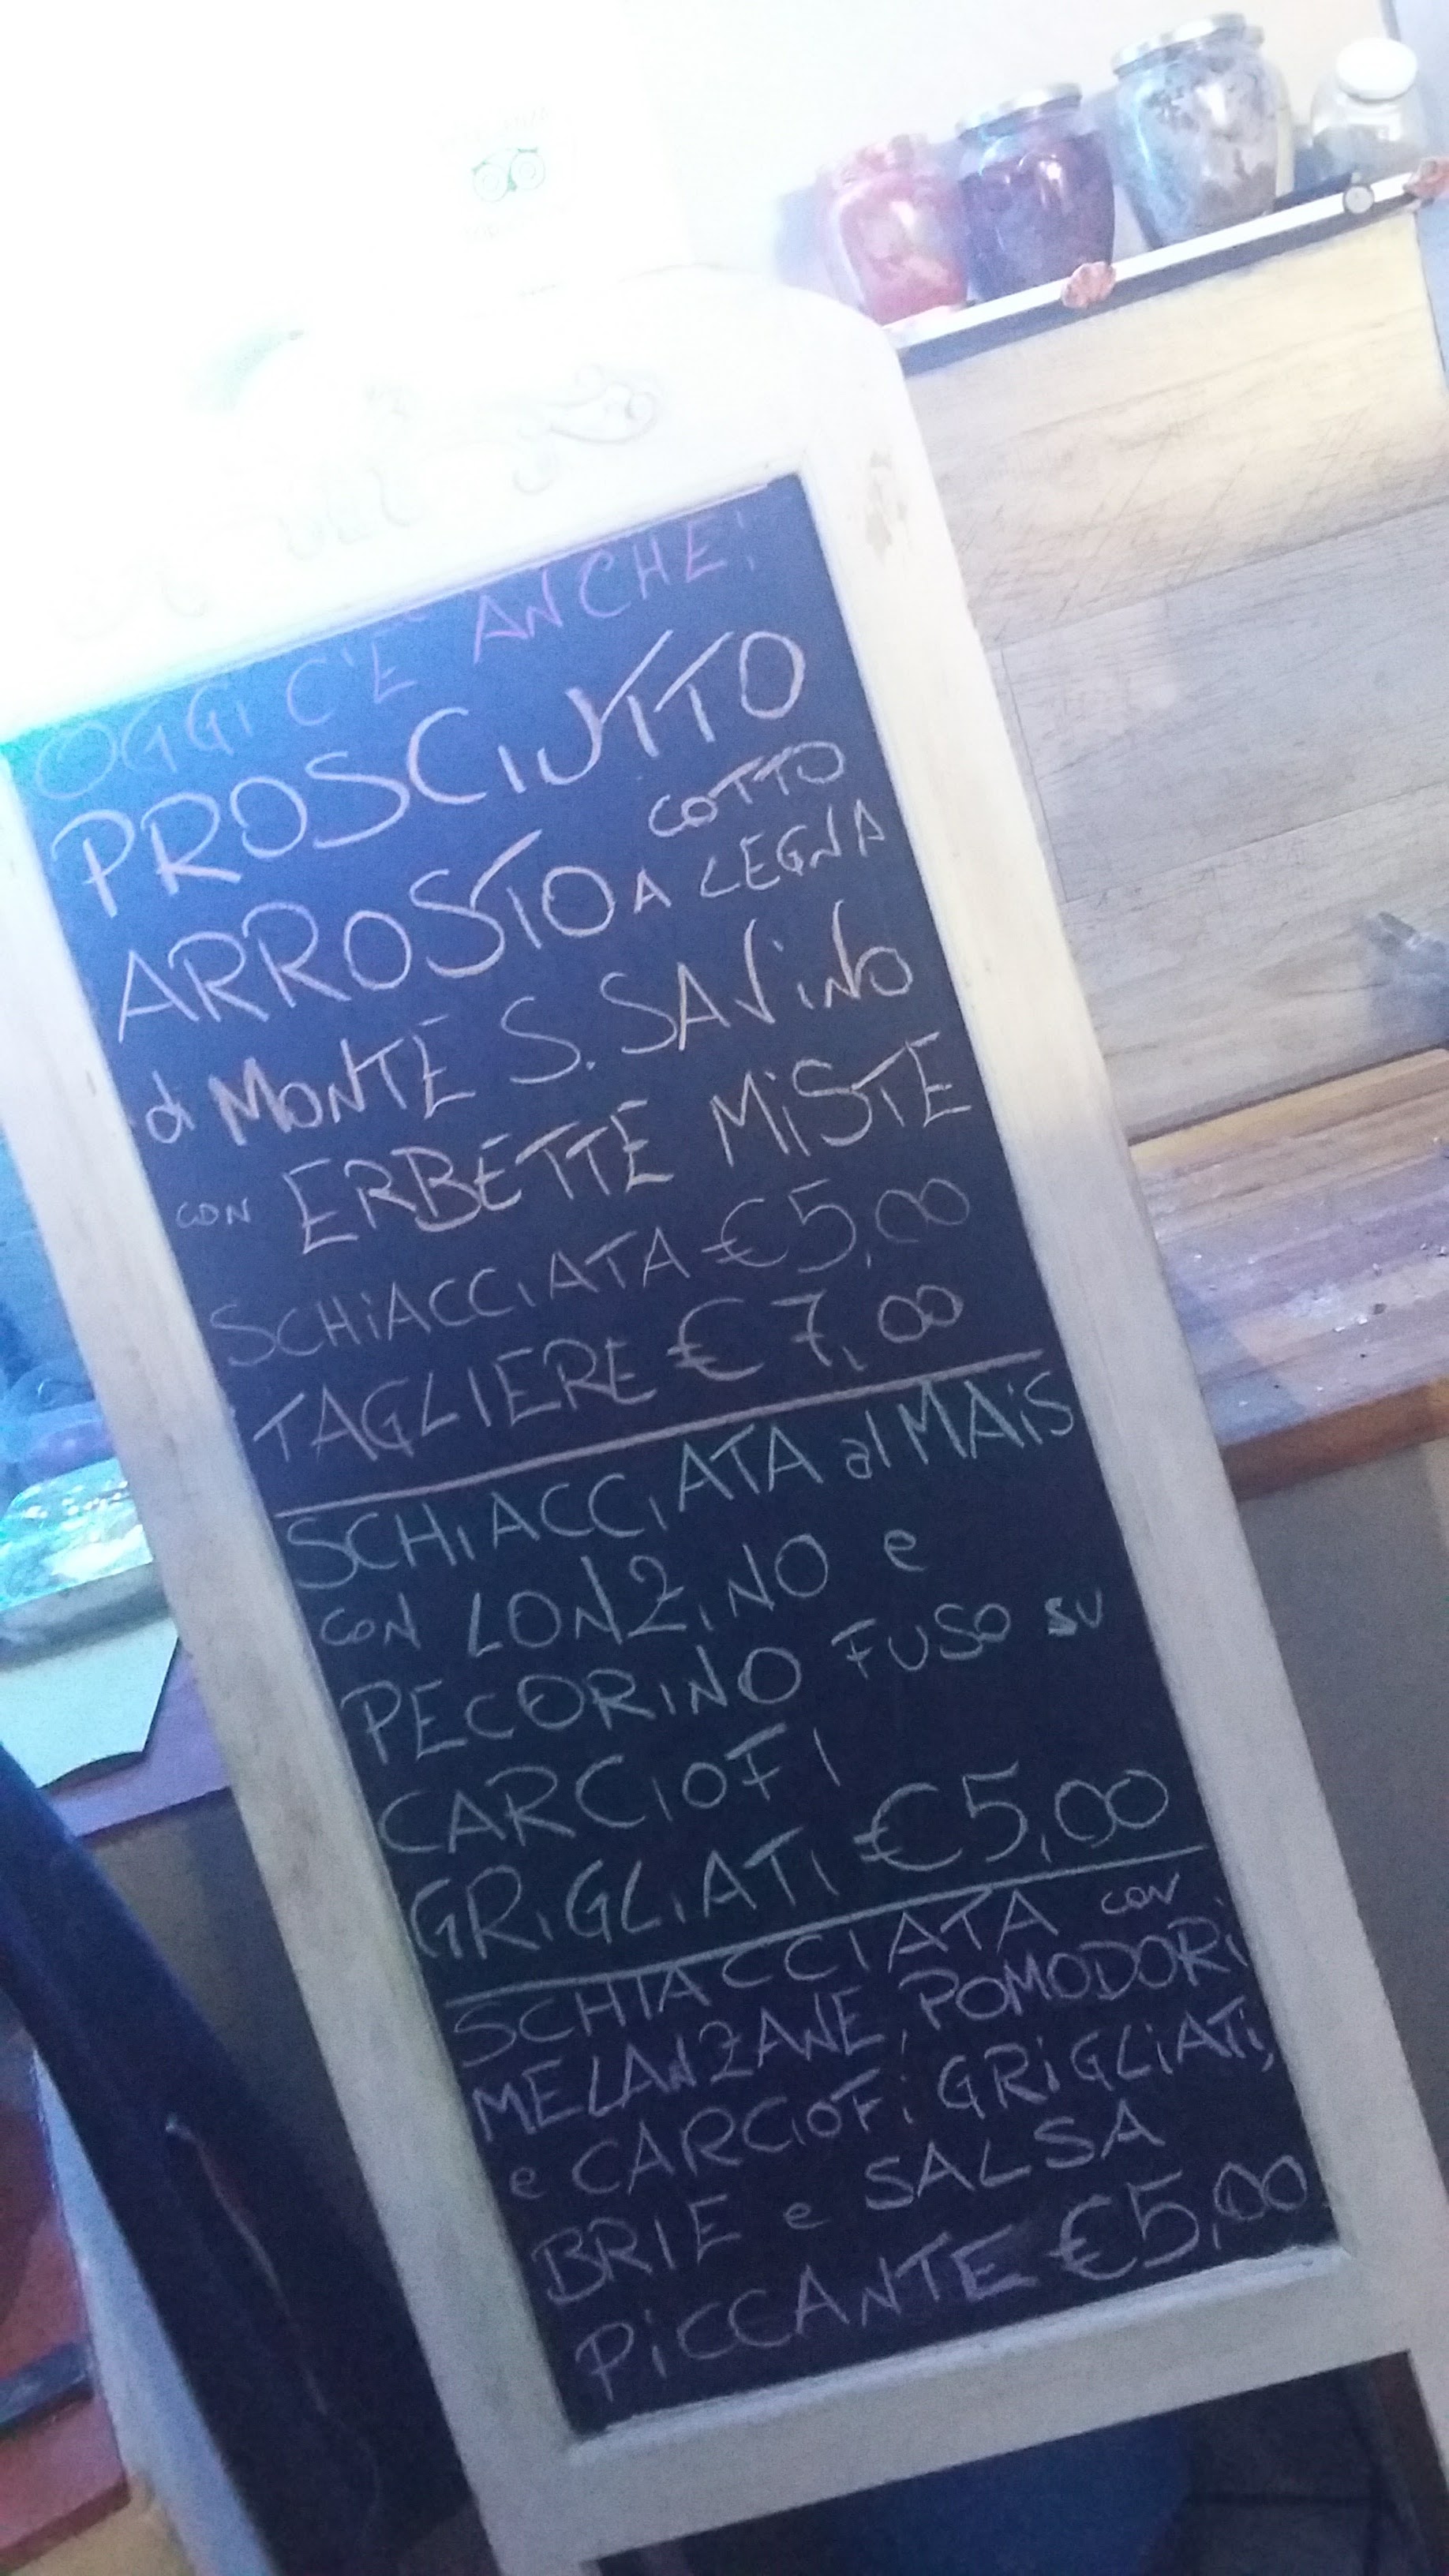 OGGI C'È ANCHE:
PROSCIUTTO
ARROSTO COTTO
A LEGNA
di MONTE S. SAViNO
CON ERBETTE MiSTE
SCHiACCiATA €5,00
TAGLIERE € 7,00
SCHiACCiATA al MAiS
CON LONZiNO e
PECORiNO FUSO SU
CARCiOFI
GRiGLiATi €5,00
SCHIACCIATA CON
MELANZANE, POMODORi
e CARCiOFi GRiGLiATi,
BRIE e SALSA
PiCCANTE €5,00